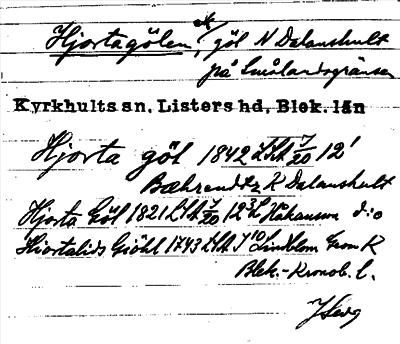 Hjortagölen, göl N Dalanshult
på Smålandsgränsen
Kyrkhults sn, Listers hd, Blek. län
Hjorta göl 1842 LSA 7/20 12'
Bæhrendtz K Dalanshult
Hjorta Göl 1821 LSA 7/20 12 Håkanson d:o
Hiortalids Giöhl 1743 LSA Lindblom Grom K
Blek.-Kronob. l.